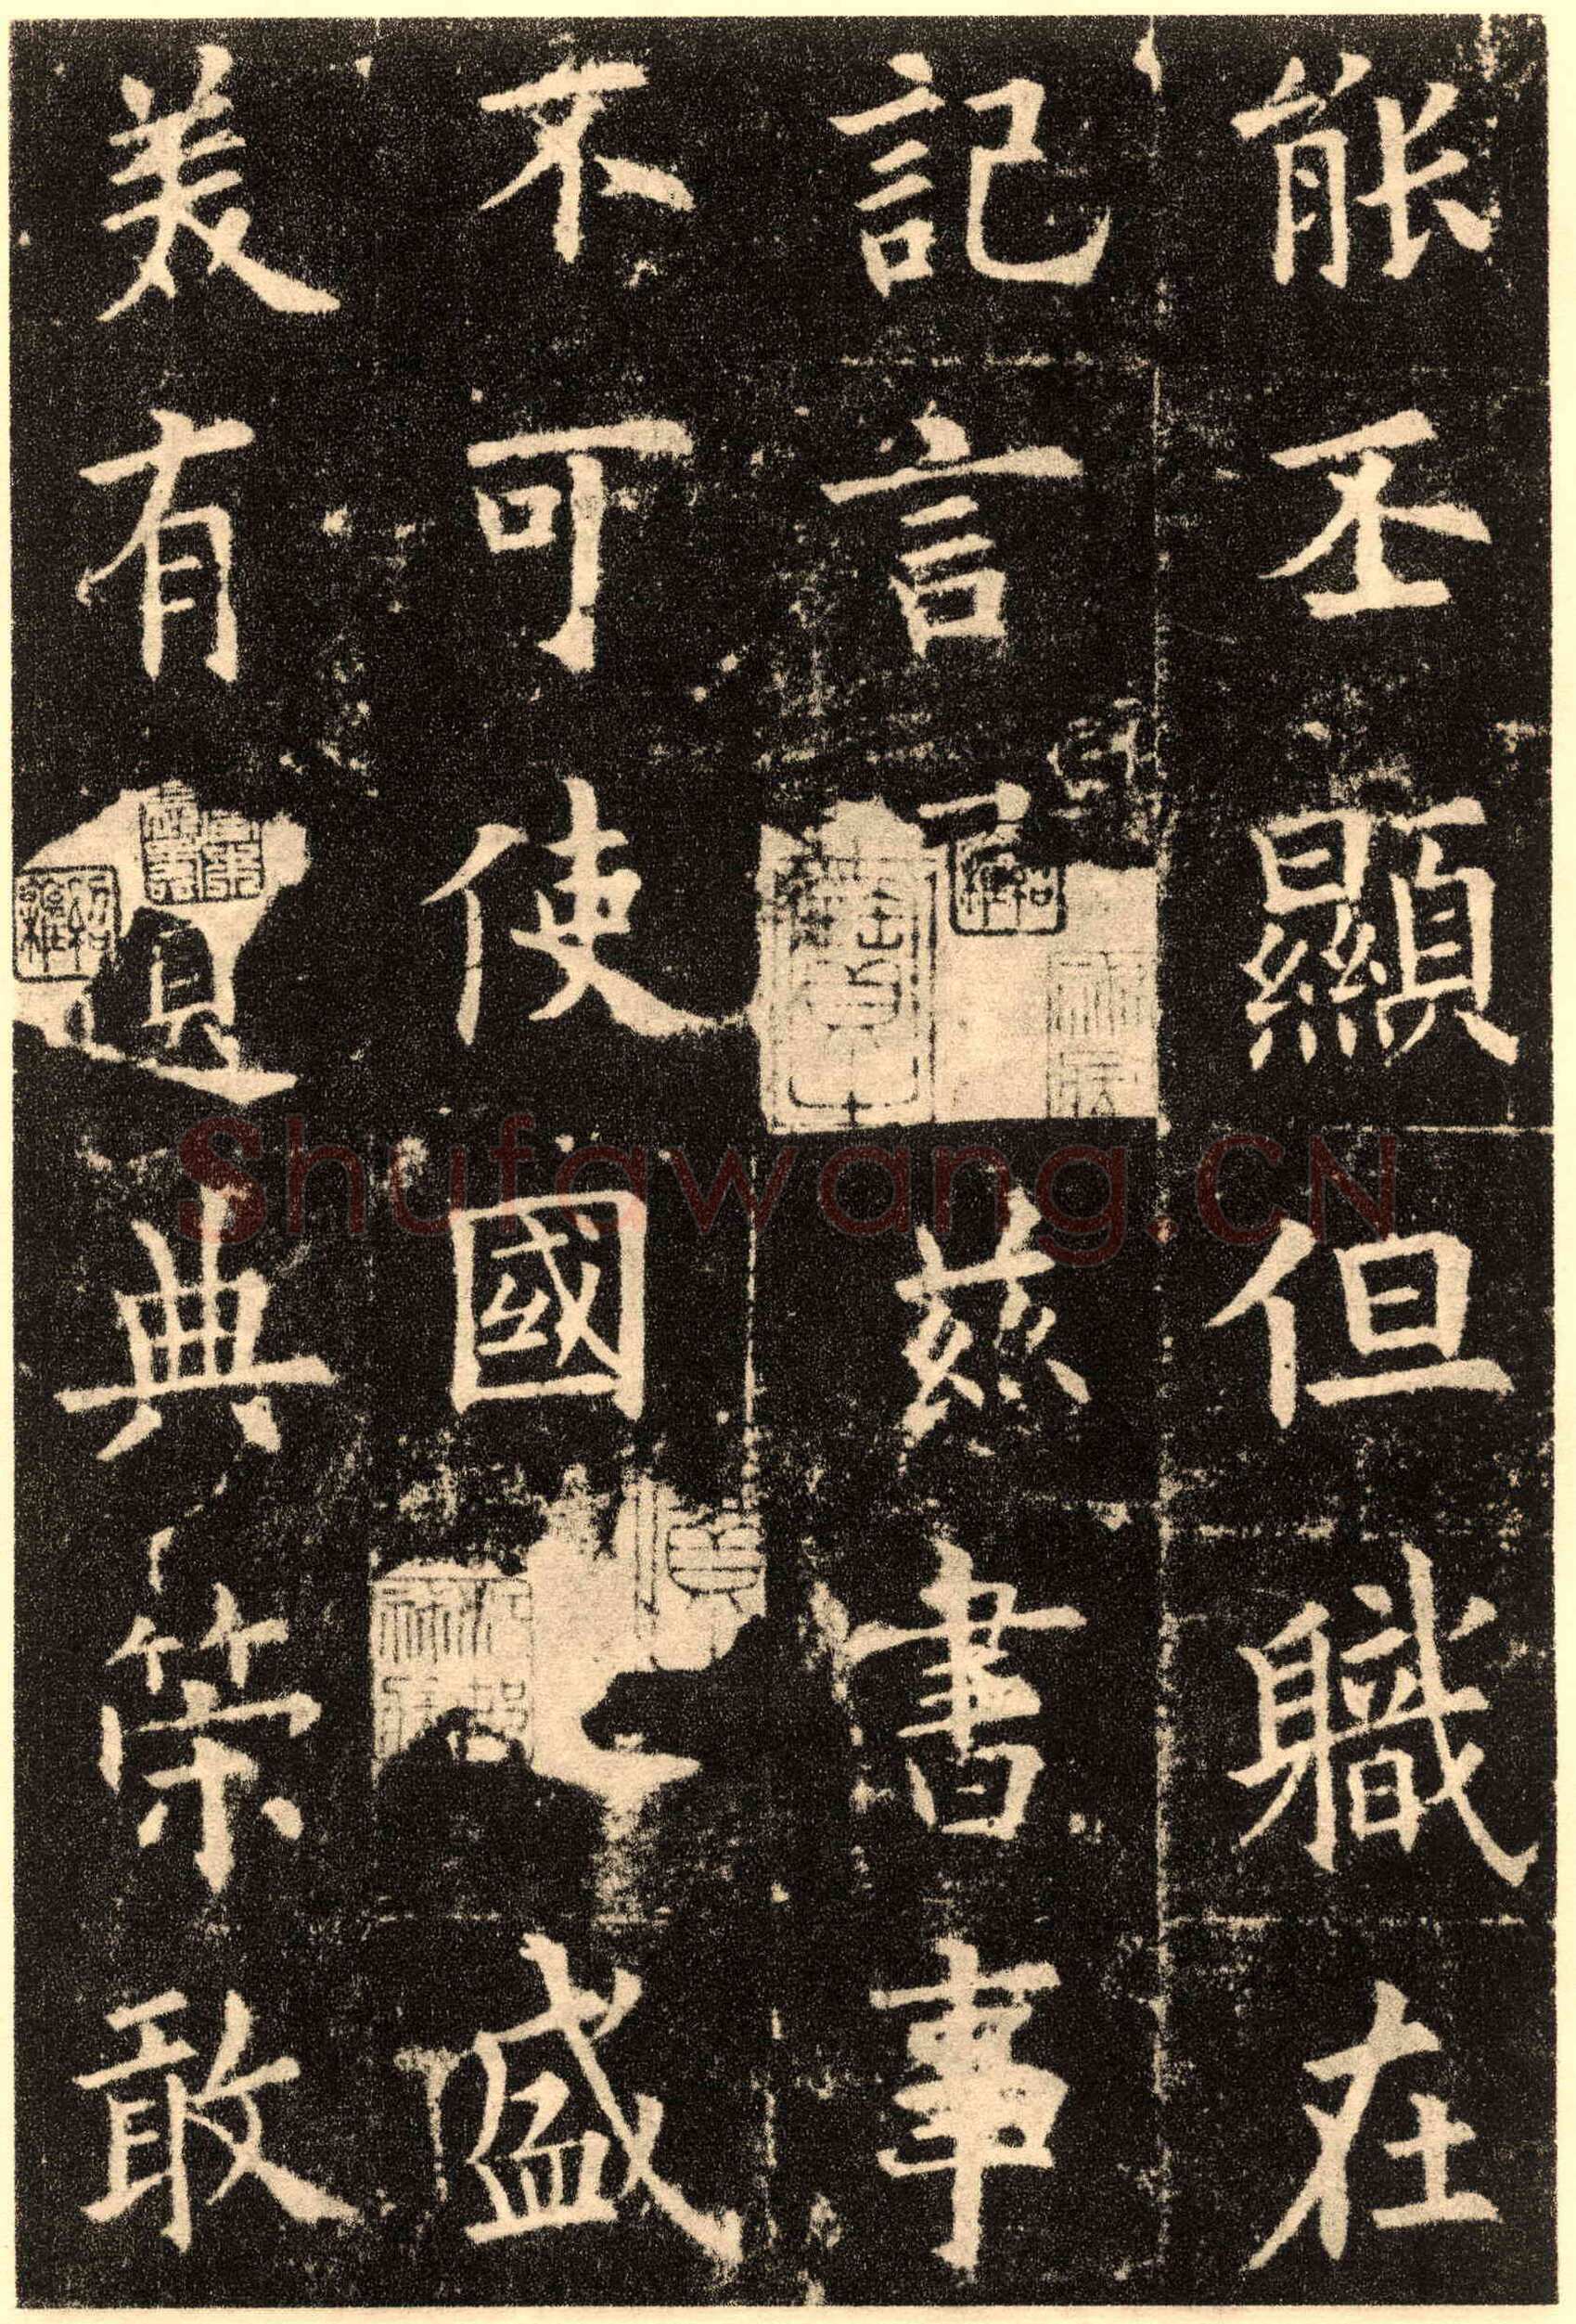 能丕顯但職在
記言茲書事
不可使國盛
美有遺典策敢
Shufawang.CN